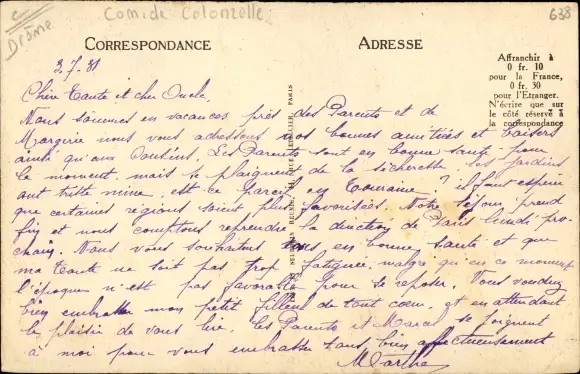 C
Drôme
Com. de Colonzelle
638
CORRESPONDANCE
ADRESSE
Affranchir à
0 fr. 10
pour la France,
0 fr. 30
pour l'Etranger.
N'écrire que sur
le côté réservé à
la correspondance
PARIS
3.7.31
Chère Tante et cher Oncle.
Nous sommes en vacances près des Parents et de
nous vous adressons nos bonnes amitiés et baisers
ainsi qu'aux Cousins. Les Parents sont en bonne santé pour
le moment, mais se plaignent de la sécheresse les jardins
ont triste mine. est-ce pareil en Touraine? il faut espérer
que certaines régions soient plus favorisées. Notre séjour prend
fin et nous comptons reprendre la direction de Paris lundi pro-
chain. Nous vous souhaitons en bonne santé et que
ma Tante ne soit pas trop fatiguée, malgré qu'en ce moment
l'époque n'est pas favorable pour se reposer. Vous voudrez
bien embrasser mon petit filleul de tout cœur, et en attendant
le plaisir de vous lire. les Parents et Marcel se joignent
à moi pour vous embrasser tous bien affectueusement
Marthe